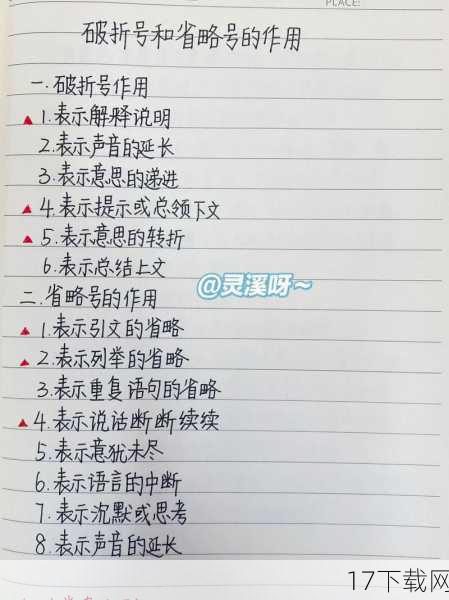 PLACE:
破折号和省略号的作用
一.破折号作用
▲1.表示解释说明
2.表示声音的延长
3.表示意思的递进
▲4.表示提示或总领下文
▲5.表示意思的转折
6.表示总结上文
@灵溪呀~
二.省略号的作用
▲1.表示引文的省略
▲2.表示列举的省略
3.表示重复语句的省略
▲4.表示说话断断续续
5.表示意犹未尽
6.表示语言的中断
7.表示沉默或思考
8.表示声音的延长
17下载网